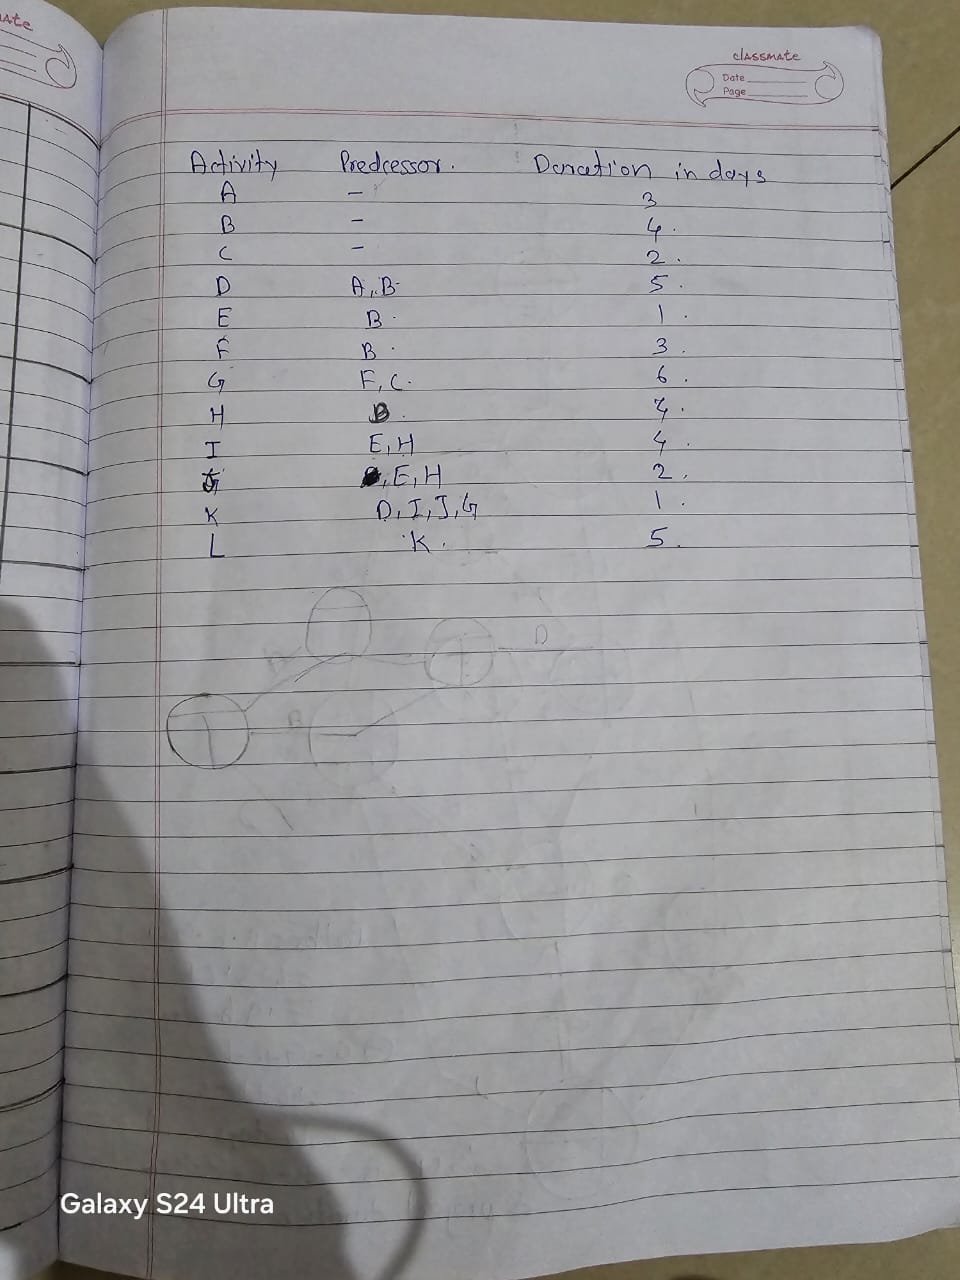 ate
classmate
Date
Page
Activity Predcessor. Duration in days
A - 3
B - 4.
C - 2.
D A, B- 5.
E B. 1.
F B. 3.
G F, C. 6.
H B. 7.
I E, H 4.
J , E, H 2.
K D, I, J, G 1.
L K. 5.
D
B
Galaxy S24 Ultra